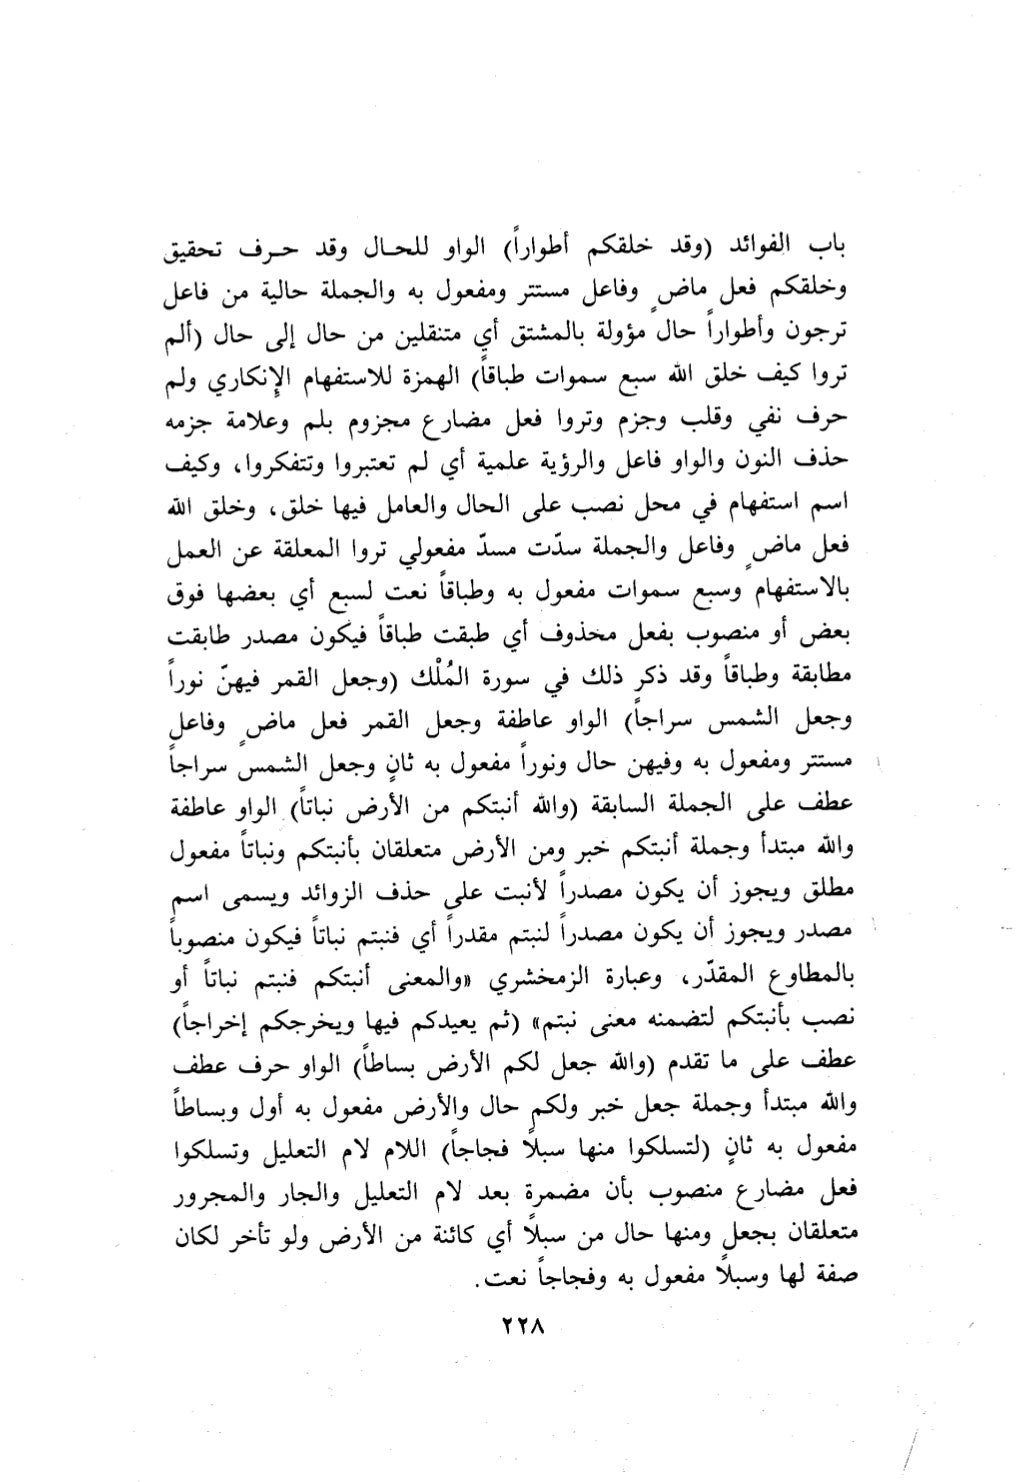 باب الفوائد (وقد خلقكم أطواراً) الواو للحال وقد حرف تحقيق
وخلقكم فعل ماضٍ وفاعل مستتر ومفعول به والجملة حالية من فاعل
ترجون وأطواراً حال مؤولة بالمشتق أي متنقلين من حال إلى حال (ألم
تروا كيف خلق الله سبع سموات طباقاً) الهمزة للاستفهام الإنكاري ولم
حرف نفي وقلب وجزم وتروا فعل مضارع مجزوم بلم وعلامة جزمه
حذف النون والواو فاعل والرؤية علمية أي لم تعتبروا وتتفكروا، وكيف
اسم استفهام في محل نصب على الحال والعامل فيها خلق، وخلق الله
فعل ماضٍ وفاعل والجملة سدّت مسدّ مفعولي تروا المعلقة عن العمل
بالاستفهام وسبع سموات مفعول به وطباقاً نعت لسبع أي بعضها فوق
بعض أو منصوب بفعل محذوف أي طبقت طباقاً فيكون مصدر طابقت
مطابقة وطباقاً وقد ذكر ذلك في سورة المُلْك (وجعل القمر فيهنّ نوراً
وجعل الشمس سراجاً) الواو عاطفة وجعل القمر فعل ماضٍ وفاعل
مستتر ومفعول به وفيهن حال ونوراً مفعول به ثانٍ وجعل الشمس سراجاً
عطف على الجملة السابقة (والله أنبتكم من الأرض نباتاً) الواو عاطفة
والله مبتدأ وجملة أنبتكم خبر ومن الأرض متعلقان بأنبتكم ونباتاً مفعول
مطلق ويجوز أن يكون مصدراً لأنبت على حذف الزوائد ويسمى اسم
مصدر ويجوز أن يكون مصدراً لنبتم مقدراً أي فنبتم نباتاً فيكون منصوباً
بالمطاوع المقدّر، وعبارة الزمخشري «والمعنى أنبتكم فنبتم نباتاً أو
نصب بأنبتكم لتضمنه معنى نبتم» (ثم يعيدكم فيها ويخرجكم إخراجاً)
عطف على ما تقدم (والله جعل لكم الأرض بساطاً) الواو حرف عطف
والله مبتدأ وجملة جعل خبر ولكم حال والأرض مفعول به أول وبساطاً
مفعول به ثانٍ (لتسلكوا منها سبلاً فجاجاً) اللام لام التعليل وتسلكوا
فعل مضارع منصوب بأن مضمرة بعد لام التعليل والجار والمجرور
متعلقان بجعل ومنها حال من سبلاً أي كائنة من الأرض ولو تأخر لكان
صفة لها وسبلاً مفعول به وفجاجاً نعت.
٢٢٨